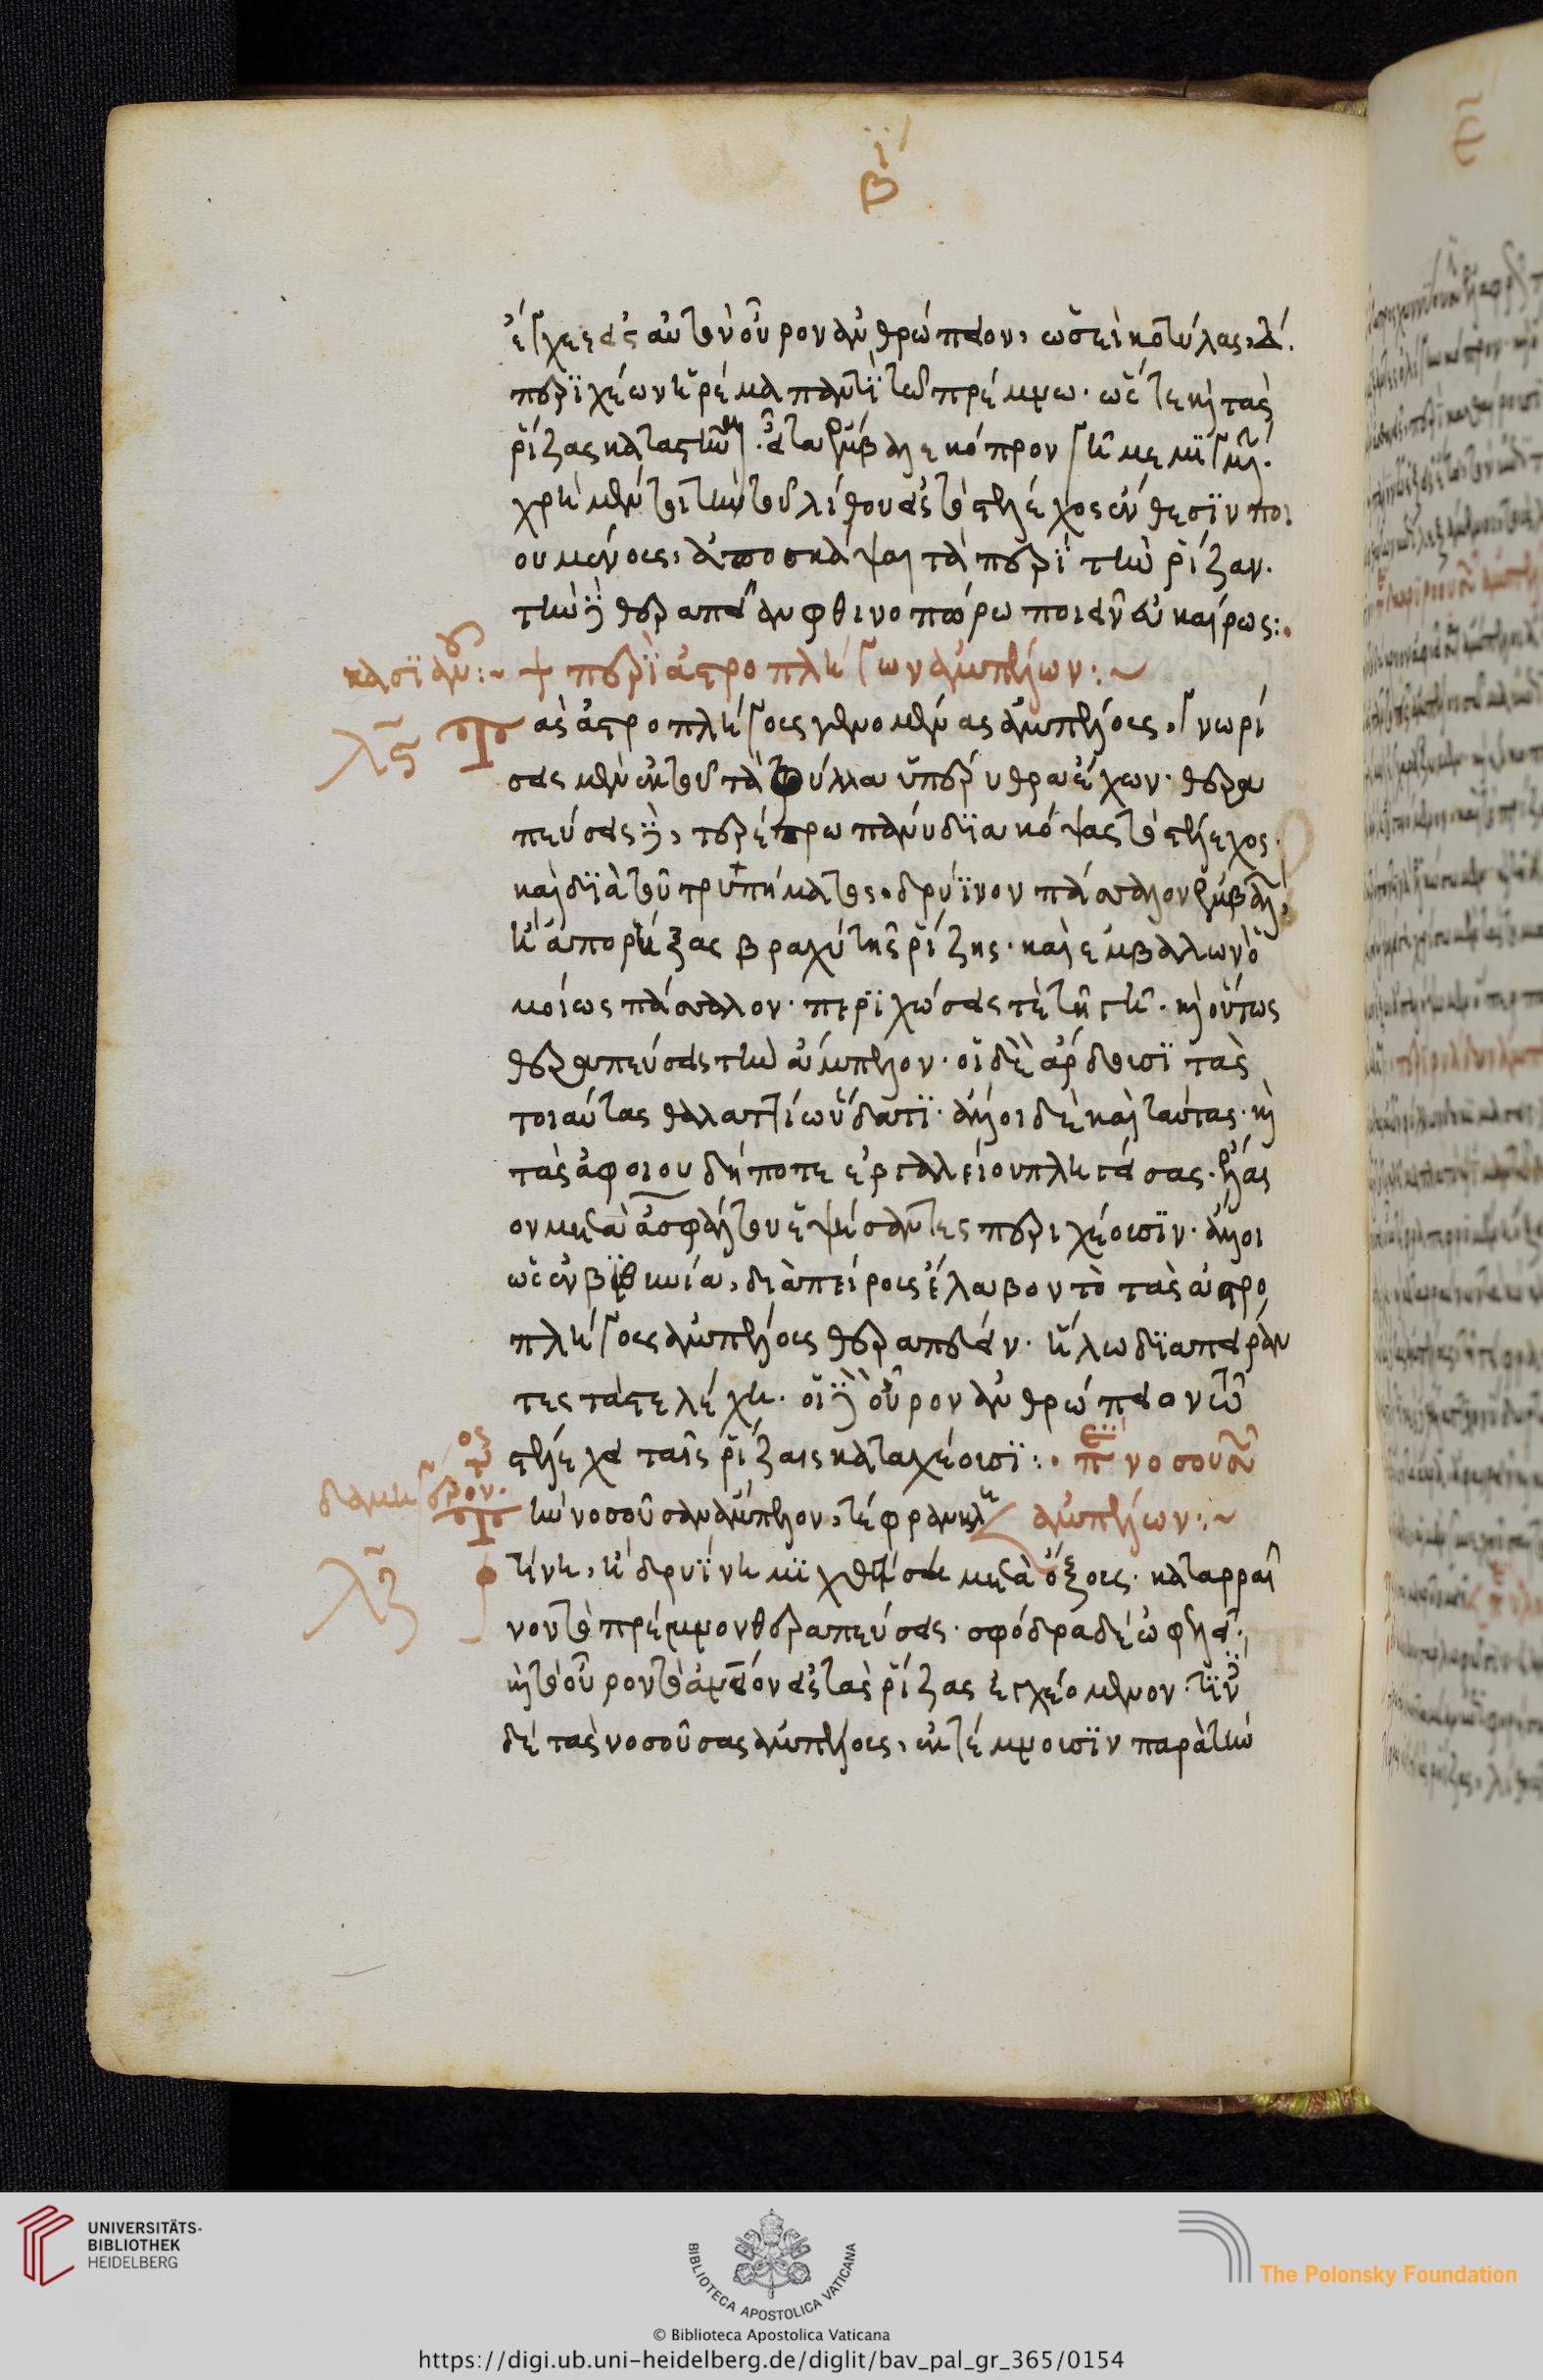 ιβ
ἔγχει εἰς αὐτὴν οὖρον ἀνθρώπειον, ὡσεὶ κοτύλας, δ.
περϊχέων ἠρέμα παντὶ τῶ πρέμνω. ὥστε καὶ τὰς
ῥίζας κατα εἶτα ἔμβαλε κόπρον γῆ μεμϊγμένη.
χρὴ μέντοι τὴν τοῦ λίθου εἰς τὸ στέλεχος ἔνθεσϊν ποι
ουμένους, ἀποσκάψαι τὰ περὶ τὴν ῥίζαν.
τὴν δὲ θεραπείαν φθινοπώρω ποιεῖν εὐκαίρως:.
κασϊανοῦ:~ + περὶ ἀστροπλήγων ἀμπέλων:~
λϛ Τὰς ἀστροπλήγους γενομένας ἀμπέλους, γνωρί
σας μὲν ἐκ τοῦ τὰ φύλλα ὑπέρυθρα ἔχειν. θερα
πεύσας δὲ, τερέτρω κόψας τὸ στέλεχος.
καὶ δϊὰ τοῦ τρυπήματος. δρύϊνον πάσσαλον ἔμβαλε,
ἢ ἀπορύξας βραχὺ τῆς ῥίζης. καὶ ἐμβαλὼν ὁ
μοίως πάσσαλον. περϊχώσας τὲ τῆ γῆ. καὶ οὕτως
θεραπεύσας τὴν ἄμπελον. οἱ δὲ ἄρδουσϊ τὰς
τοιαύτας θαλαττίω ὕδατϊ. ἄλλοι δὲ καὶ ταύτας. καὶ
τὰς ἀφοιουδήποτε ἐργαλείου πληγείσας. ἔλαι
ον μετὰ ἀσφάλτου ἑψήσαντες περιχέουσϊν. ἄλλοι
ὡς ἐν βϊθυνία, διὰ πείρους ἔλαβον τὸ τὰς ἀστρο
πλήγους ἀμπέλους θεραπεύειν. ἥλω δϊαπείραν
τες τὰ στελέχη. οἱ δὲ οὖρον ἀνθρώπειον τῶ
στελέχει ταῖς ῥίζαις καταχέουσϊ:. περὶ νοσουσῶν
Τὴν νοσοῦσαν ἄμπελον, τέφραν κλη ἀμπέλων:~
λζ τίνη, ἢ δρυΐνη μϊχθείση μετὰ ὄξους. καταρραί
νον τὸ πρέμνον θεραπεύσεις. σφόδρα δὲ ὠφελεῖ.
καὶ τὸ οὖρον εἰς τὰς ῥίζας ἐγχεόμενον. τϊνὲς
δὲ τὰς νοσούσας ἀμπέλους, ἐκτέμνουσϊν παρὰ τὴν
UNIVERSITÄTS-
BIBLIOTHEK
HEIDELBERG
BIBLIOTECA APOSTOLICA VATICANA
The Polonsky Foundation
© Biblioteca Apostolica Vaticana
https://digi.ub.uni-heidelberg.de/diglit/bav_pal_gr_365/0154